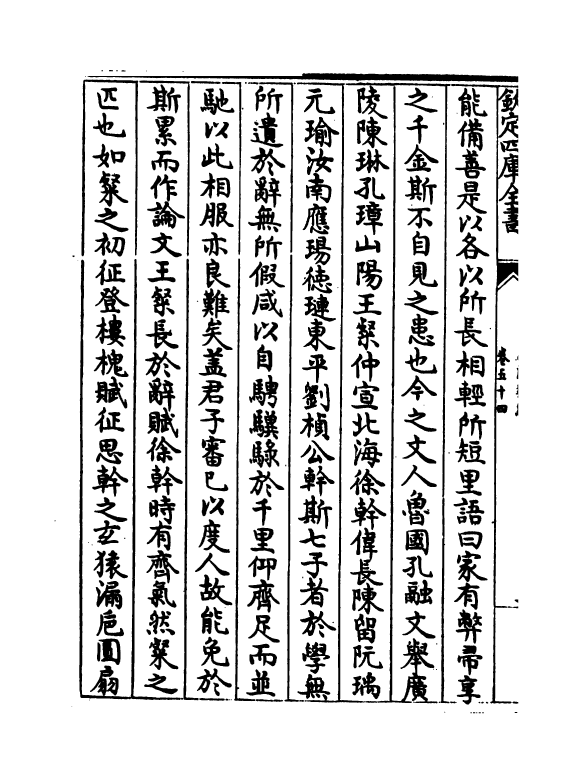 欽定四庫全書
卷五十四
能備善是以各以所長相輕所短里語曰家有弊帚享
之千金斯不自見之患也今之文人魯國孔融文舉廣
陵陳琳孔璋山陽王粲仲宣北海徐幹偉長陳留阮瑀
元瑜汝南應瑒德璉東平劉楨公幹斯七子者於學無
所遺於辭無所假咸以自騁驥騄於千里仰齊足而並
馳以此相服亦良難矣盖君子審己以度人故能免於
斯累而作論文王粲長於辭賦徐幹時有齊氣然粲之
匹也如粲之初征登樓槐賦征思幹之玄猿漏巵圓扇